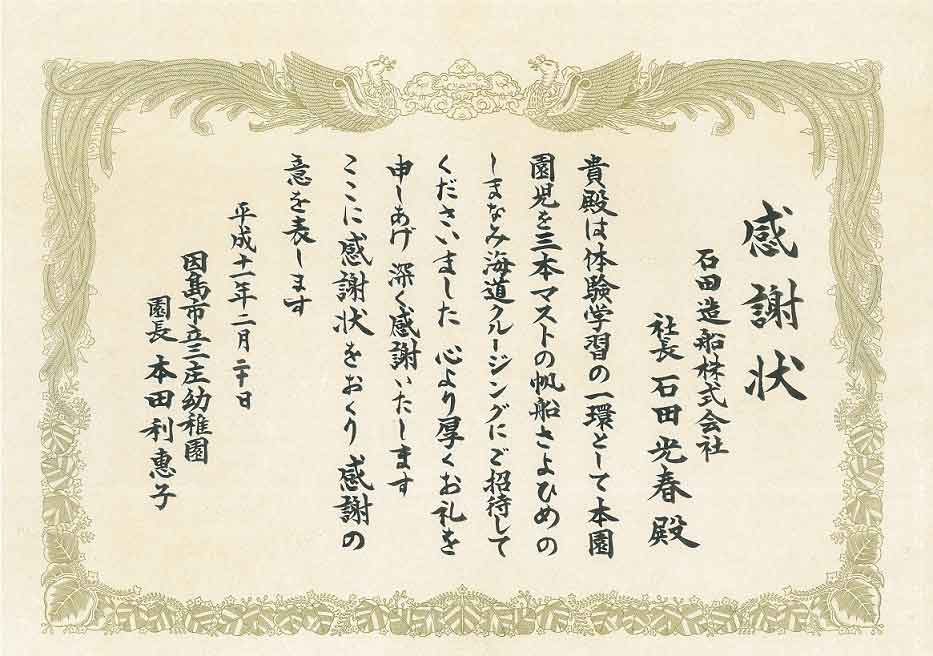 感謝状
石田造船株式会社
社長 石田光春殿
貴殿は体験学習の一環として本園
園児を三本マストの帆船さよひめの
しまなみ海道クルージングにご招待して
くださいました 心より厚くお礼を
申しあげ 深く感謝いたします
ここに感謝状をおくり 感謝の
意を表します
平成十一年二月二十日
因島市立三庄幼稚園
園長 本田利惠子